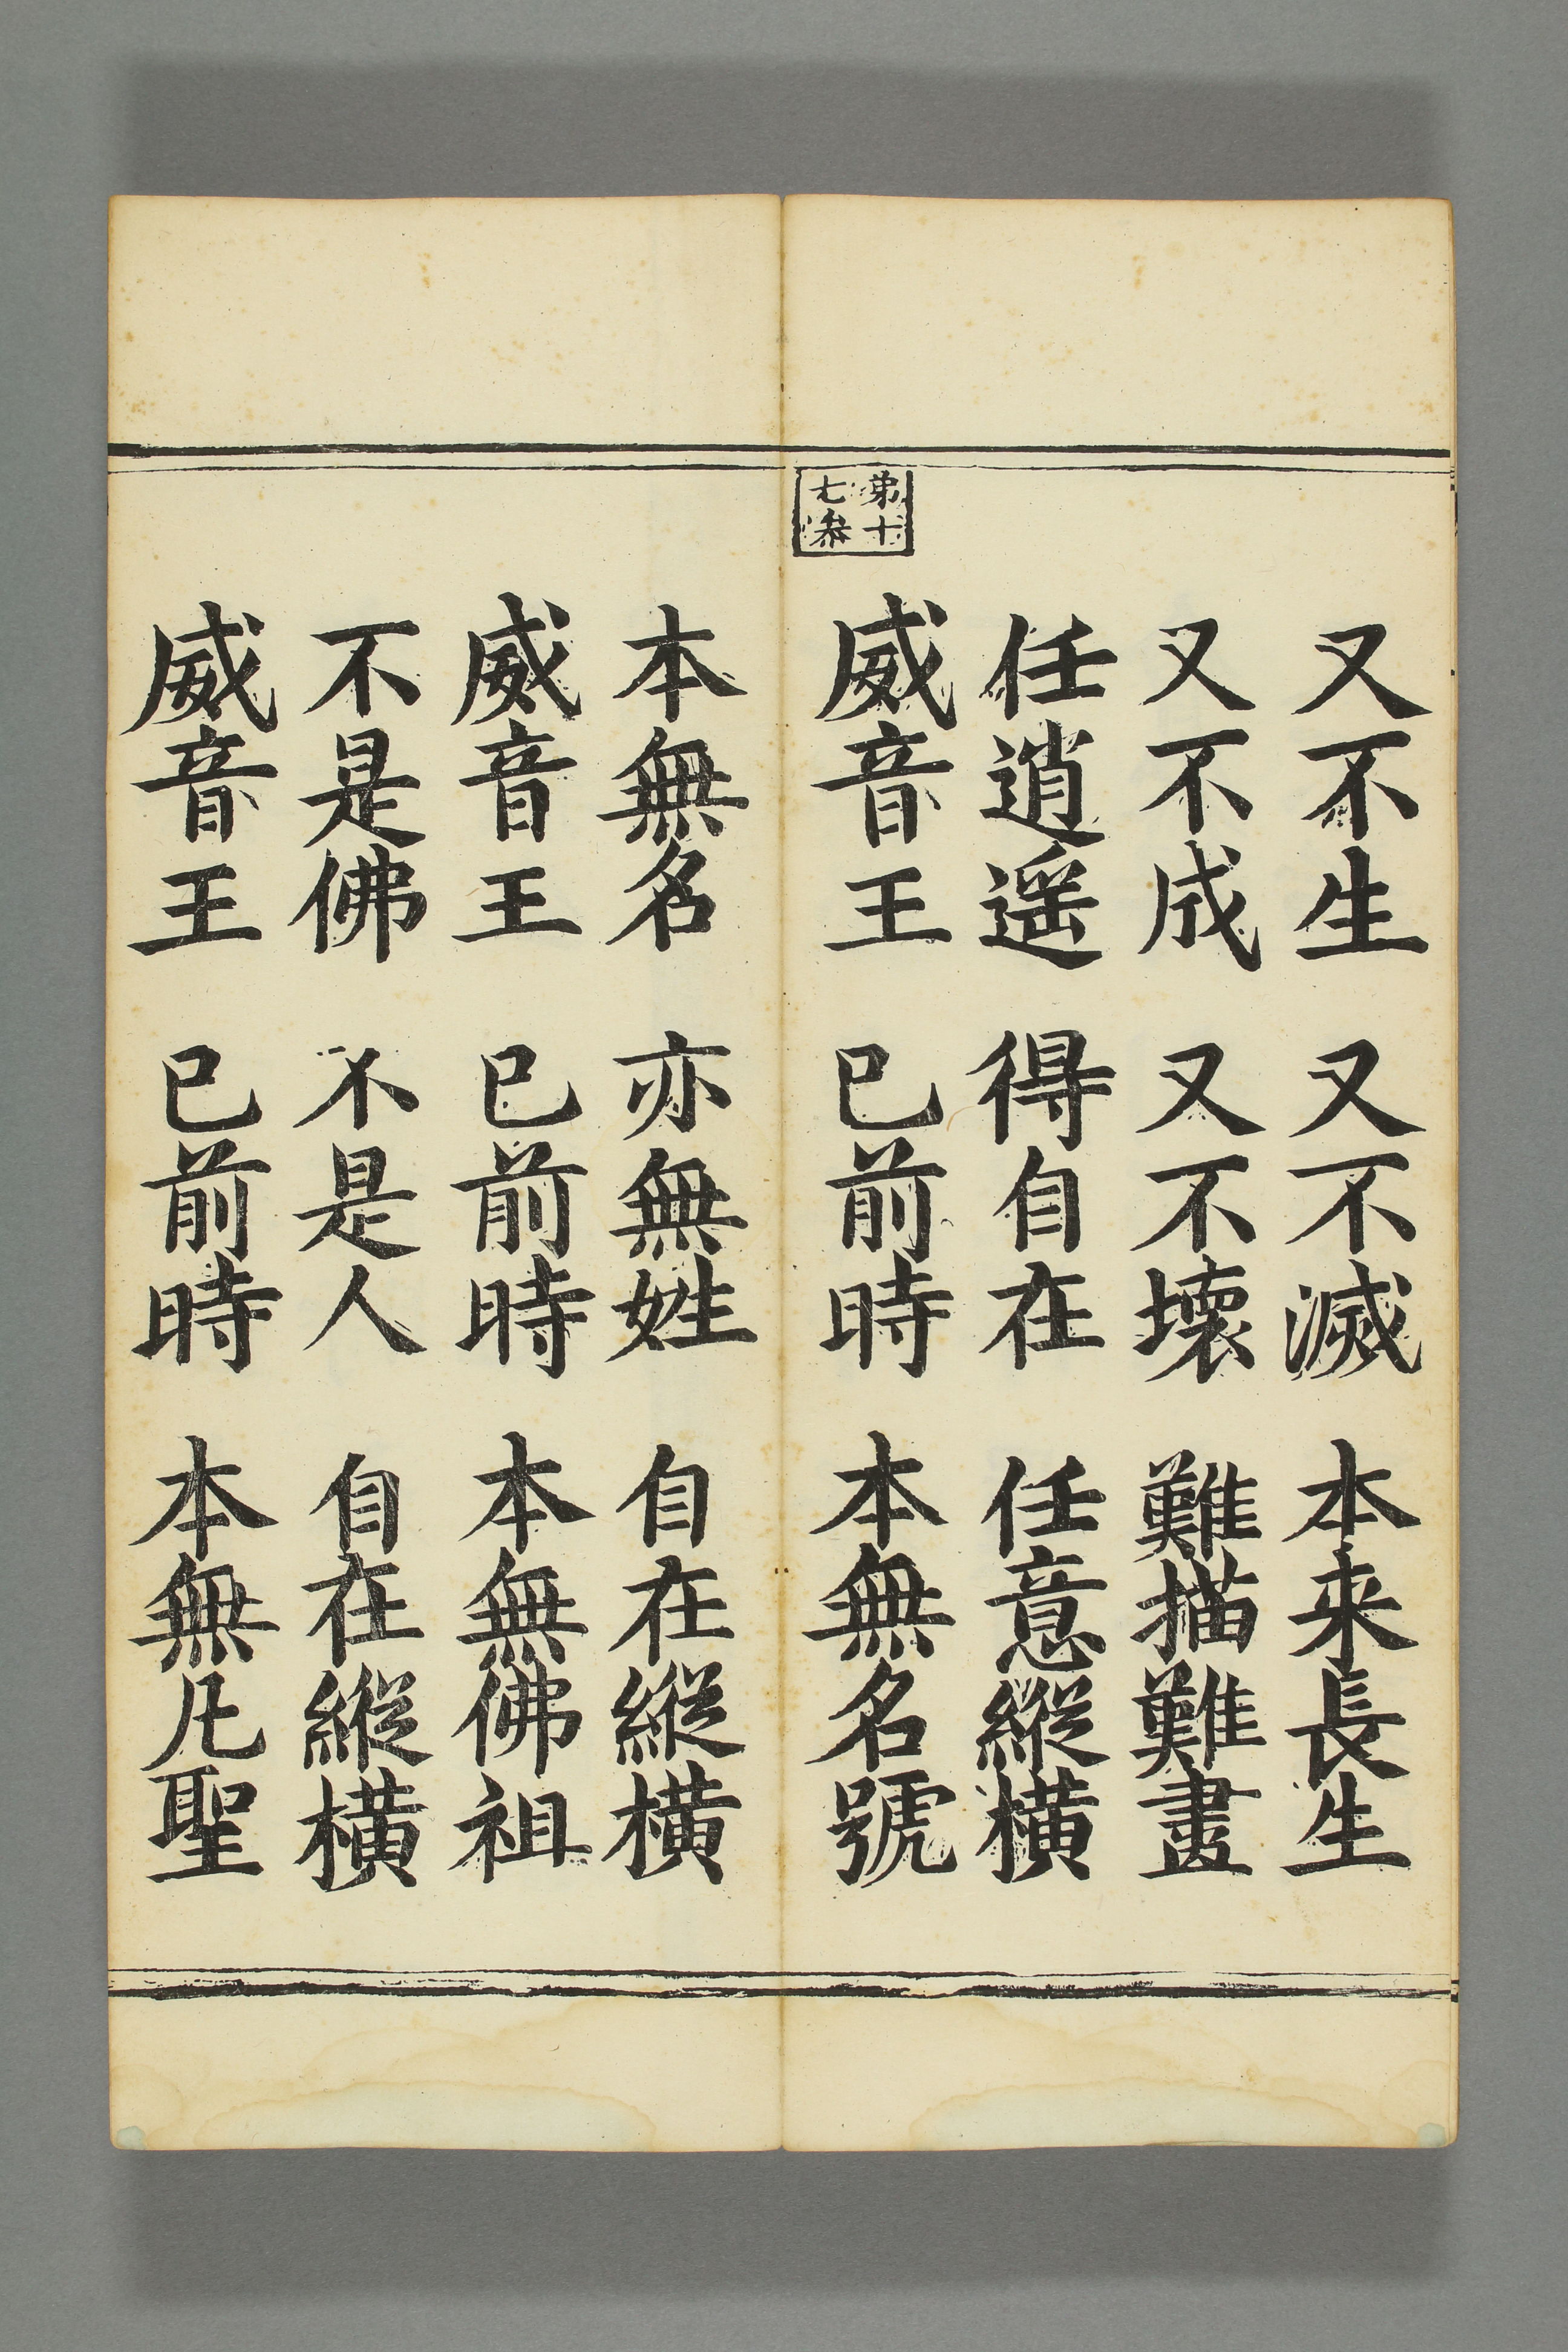 又不生 又不滅 本来長生
又不成 又不壞 難描難畫
任逍遥 得自在 任意縱横
威音王 已前時 本無名號
弟十
七叅
本無名 亦無姓 自在縱横
威音王 已前時 本無佛祖
不是佛 不是人 自在縱横
威音王 已前時 本無凡聖